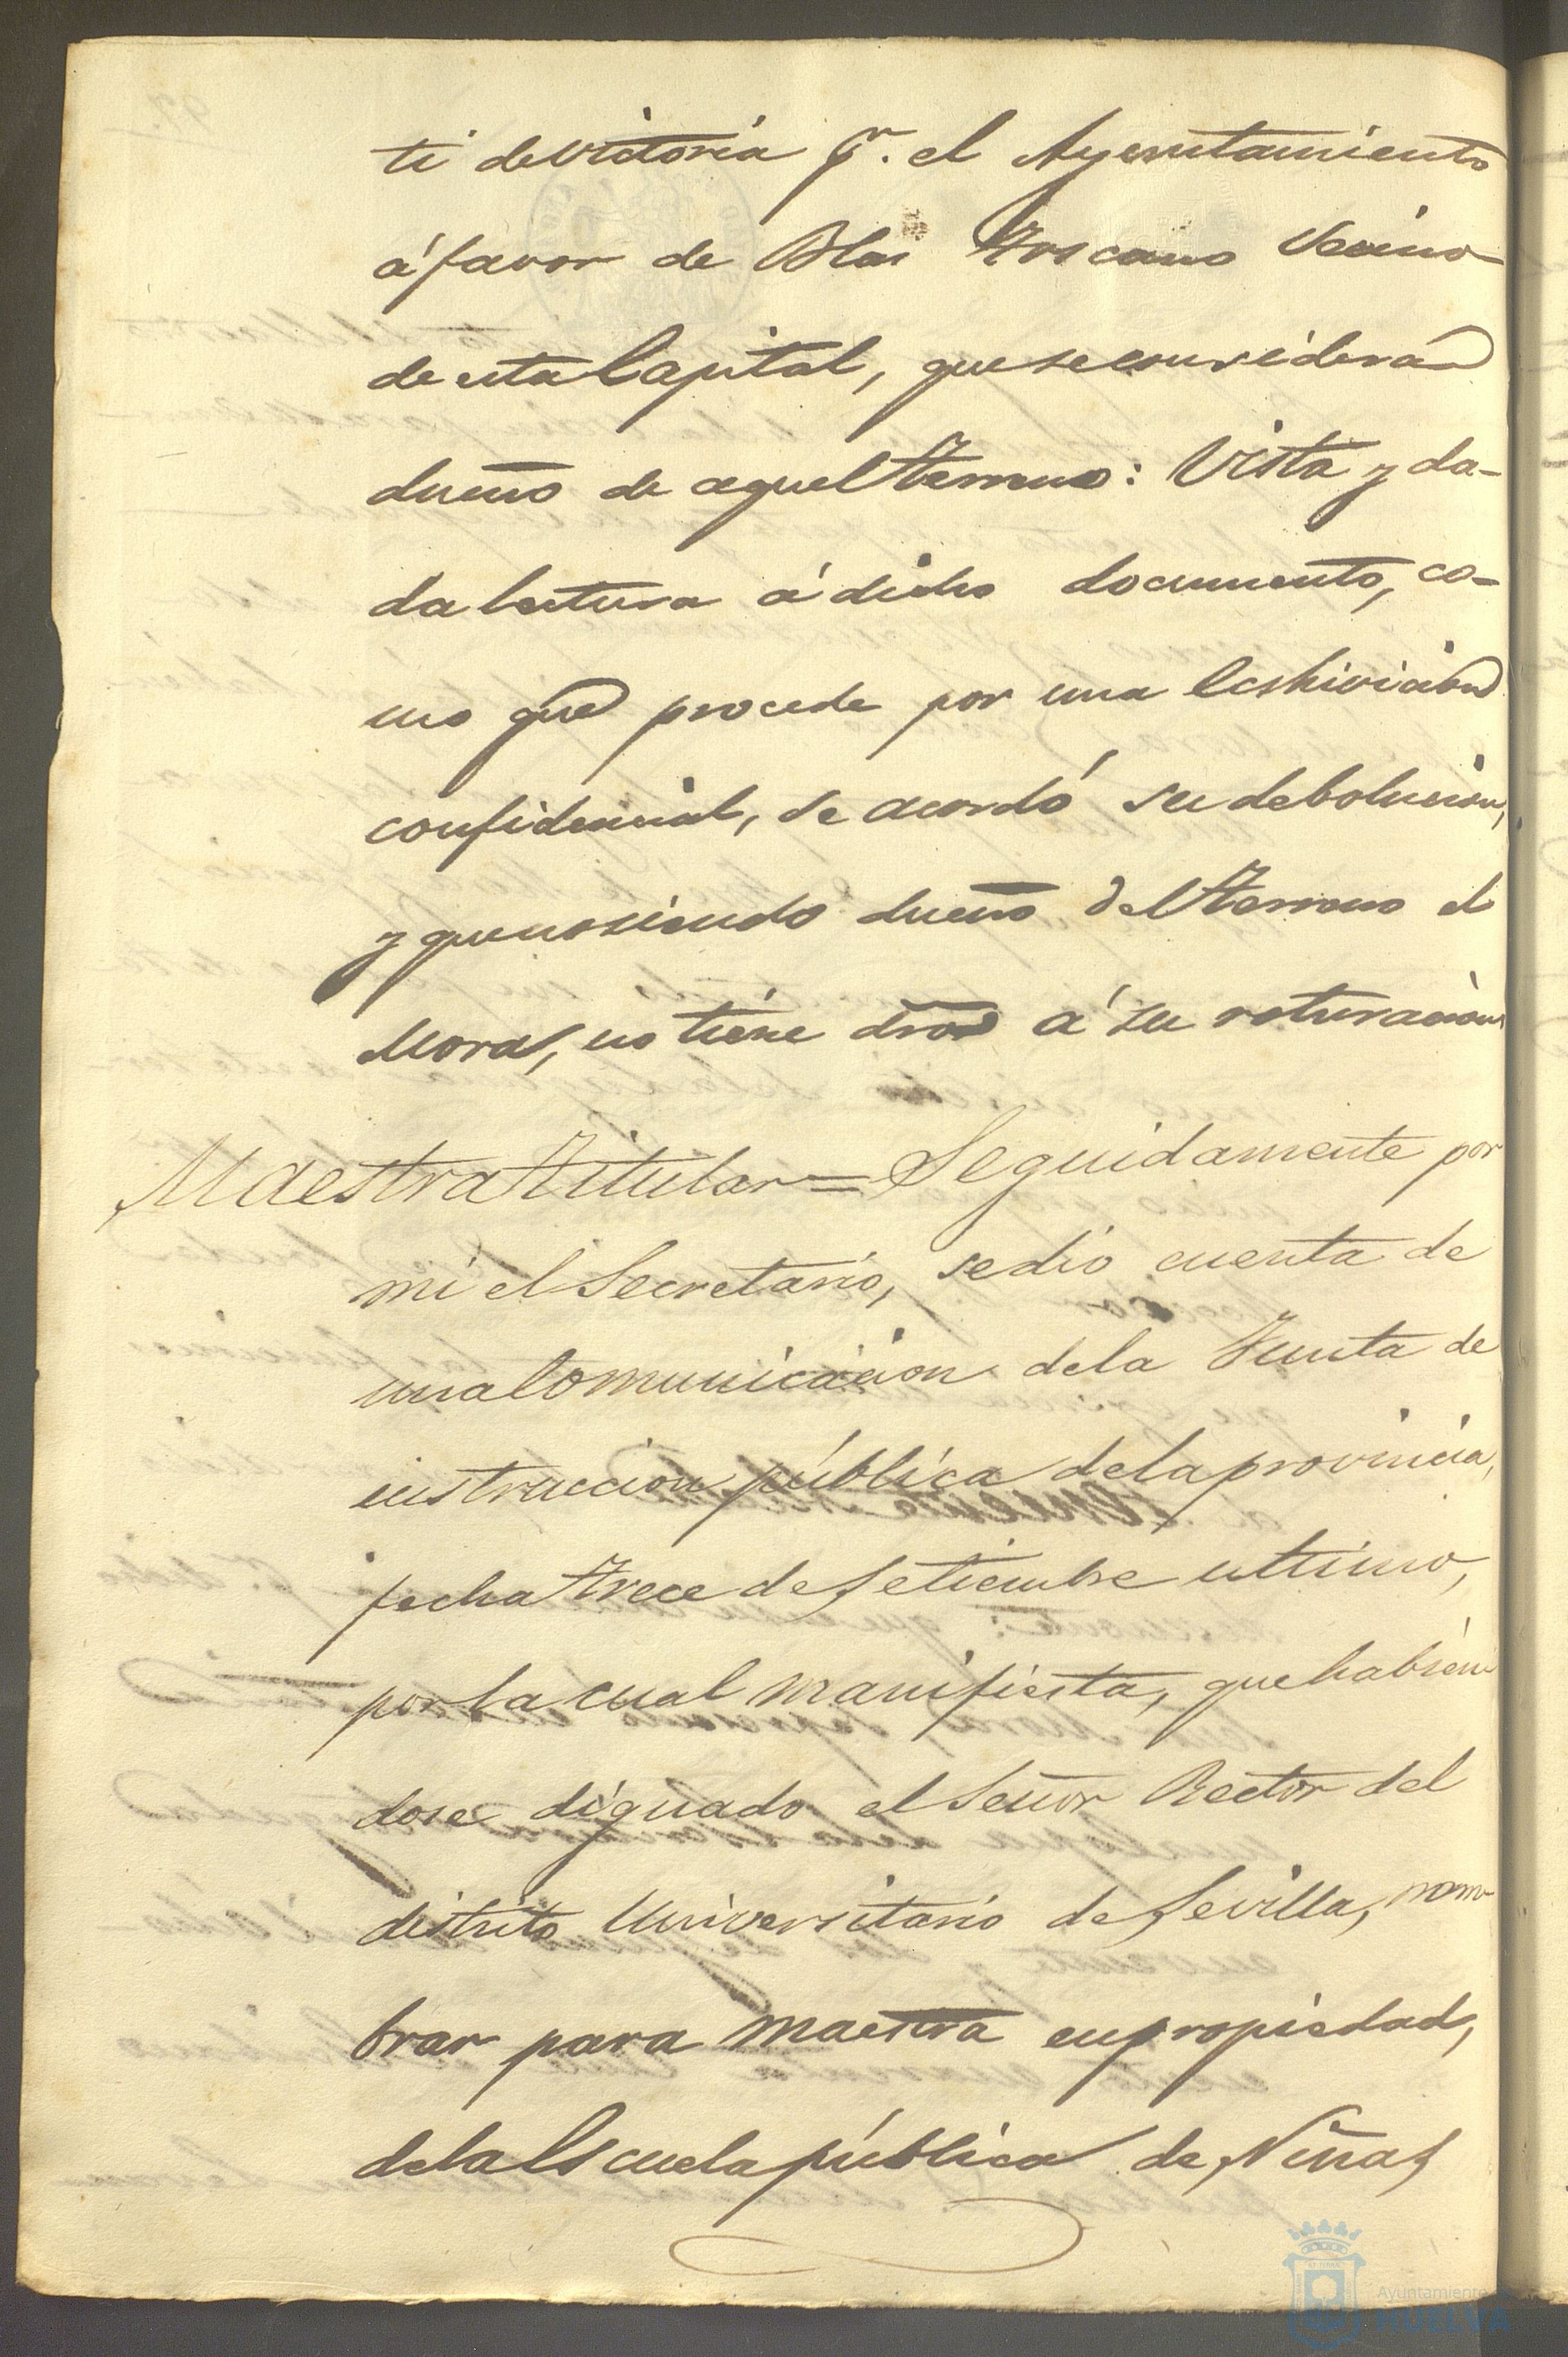 ti devictoria pr. el Ayuntamiento
á favor de Blas Troscano Vecino
de esta Capital, que se considera
dueño de aquel terreno: Vista y da-
da lectura á dicho documento, co-
mo que procede por una Ecshivicion
confidencial, se acordó su debolucion,
y que no siendo dueño del terreno el
Mora, no tiene dro á su roturacion
Maestra Titular = Seguidamente por
mi el Secretario, se dio cuenta de
una Comunicacion de la Junta de
instruccion pública de la provincia,
fecha trece de Setiembre ultimo,
por la cual manifiesta, que habien
dose dignado el Señor Rector del
distrito Universitario de Sevilla, nom-
brar para maestra en propiedad,
de la Escuela pública de Niñas
Ayuntamiento
HUELVA